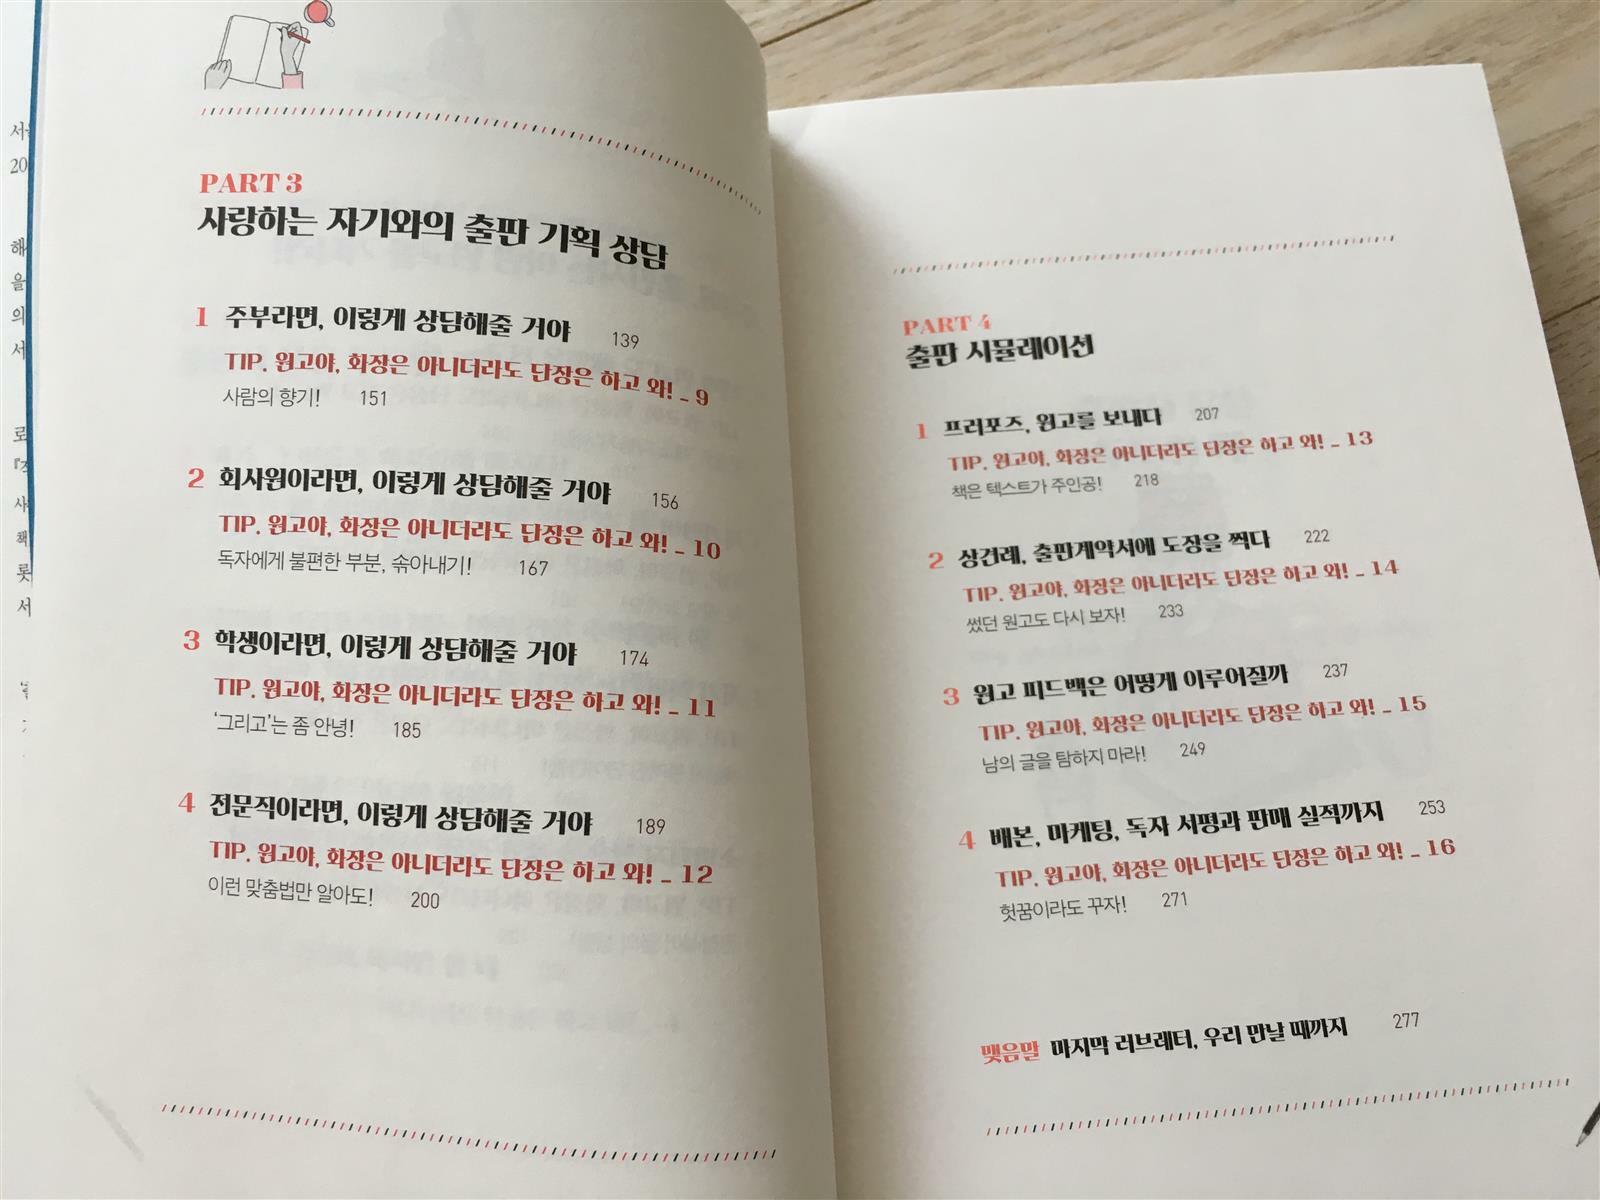 서
20
해
을
의
서
로
사
책
롯
서
PART 3
사랑하는 자기와의 출판 기획 상담
1 주부라면, 이렇게 상담해줄 거야 139
TIP. 원고야, 화장은 아니더라도 단장은 하고 와! _ 9
사람의 향기! 151
2 회사원이라면, 이렇게 상담해줄 거야 156
TIP. 원고야, 화장은 아니더라도 단장은 하고 와! _ 10
독자에게 불편한 부분, 솎아내기! 167
3 학생이라면, 이렇게 상담해줄 거야 174
TIP. 원고야, 화장은 아니더라도 단장은 하고 와! _ 11
‘그리고’는 좀 안녕! 185
4 전문직이라면, 이렇게 상담해줄 거야 189
TIP. 원고야, 화장은 아니더라도 단장은 하고 와! _ 12
이런 맞춤법만 알아도! 200
PART 4
출판 시뮬레이션
1 프러포즈, 원고를 보내다 207
TIP. 원고야, 화장은 아니더라도 단장은 하고 와! _ 13
책은 텍스트가 주인공! 218
2 상견례, 출판계약서에 도장을 찍다 222
TIP. 원고야, 화장은 아니더라도 단장은 하고 와! _ 14
썼던 원고도 다시 보자! 233
3 원고 피드백은 어떻게 이루어질까 237
TIP. 원고야, 화장은 아니더라도 단장은 하고 와! _ 15
남의 글을 탐하지 마라! 249
4 배본, 마케팅, 독자 서평과 판매 실적까지 253
TIP. 원고야, 화장은 아니더라도 단장은 하고 와! _ 16
헛꿈이라도 꾸자! 271
맺음말 마지막 러브레터, 우리 만날 때까지 277